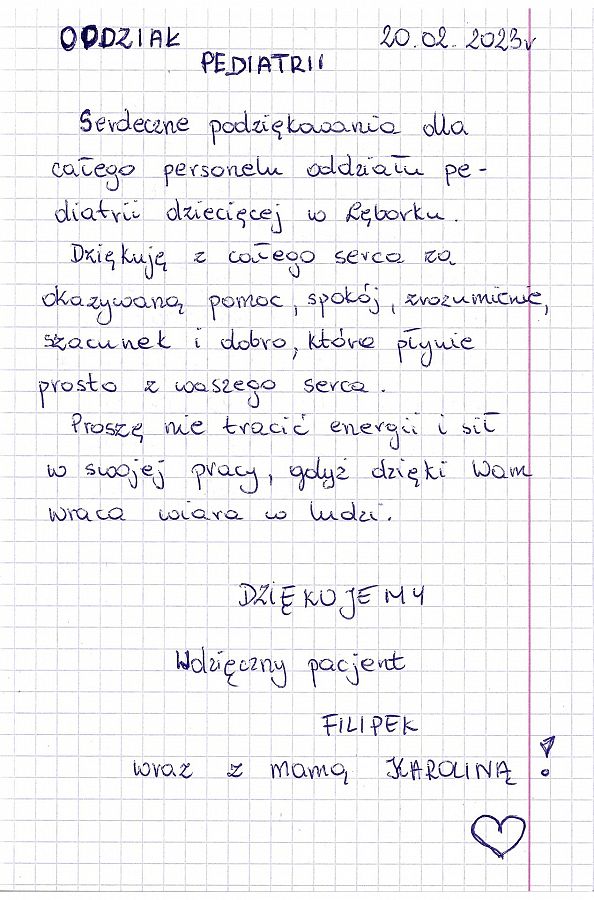 ODDZIAŁ 20.02.2023r
PEDIATRII
Serdeczne podziękowania dla
całego personelu oddziału pe-
diatrii dziecięcej w Lęborku.
Dziękuję z całego serca za
okazywaną pomoc, spokój, zrozumienie,
szacunek i dobro, które płynie
prosto z waszego serca.
Proszę nie tracić energii i sił
w swojej pracy, gdyż dzięki Wam
wraca wiara w ludzi.
DZIĘKUJEMY
Wdzięczny pacjent
FILIPEK
wraz z mamą KAROLINĄ!